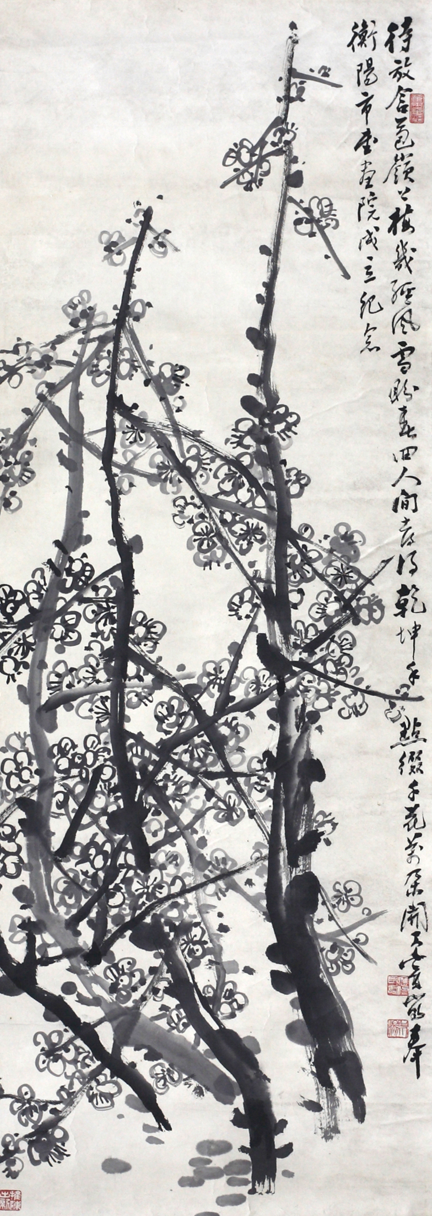 待放含苞嶺上梅幾經風雪盼春回人間贏得乾坤手點綴千花萬朵開
衡陽市書畫院成立紀念